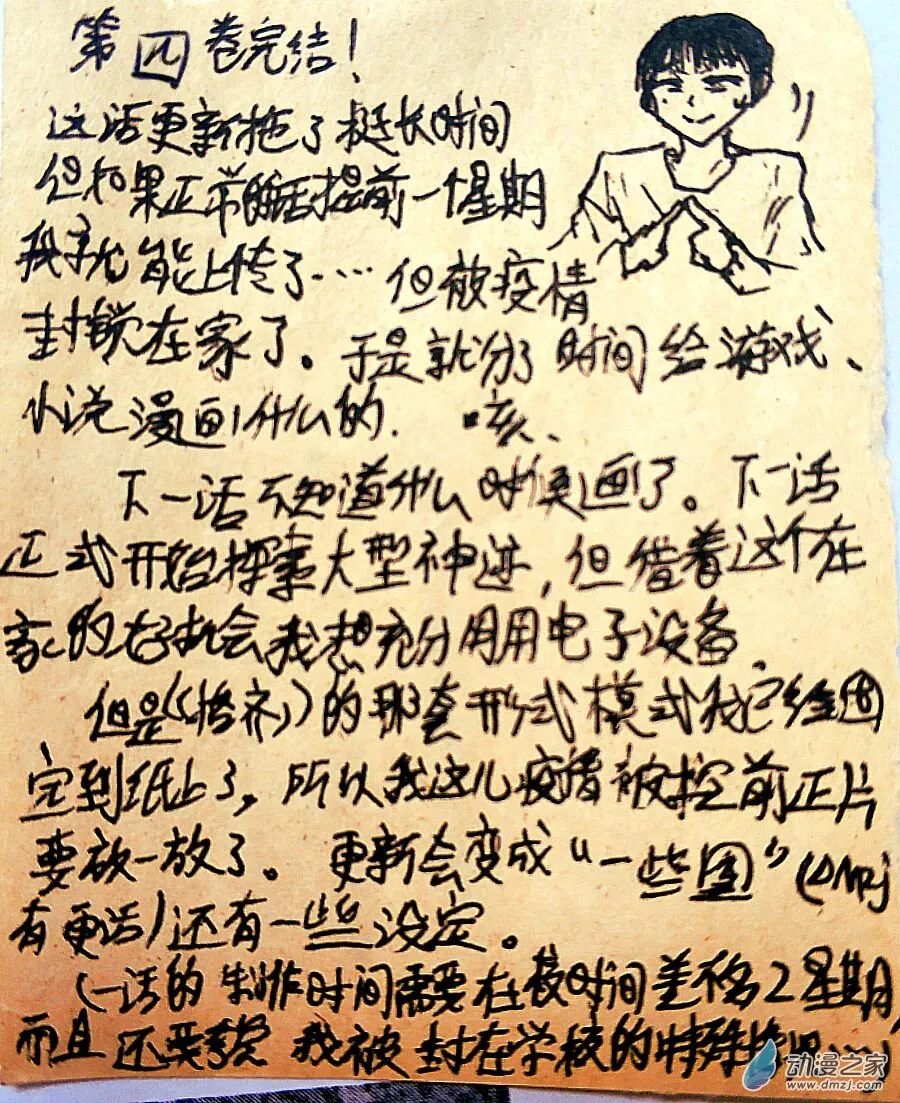 第四卷完结！
这话更新拖了挺长时间
但如果正常的话提前一个星期
我就能上传了……但被疫情
封锁在家了。于是就分了时间给游戏、
小说漫画什么的. 咳、
下一话不知道什么时候画了。下一话
正式开始探索大型神迹,但借着这个在
家的好机会我想充分用用电子设备.
但是《悟齐》的那套形式模式我已经固
定到纸上了,所以我这儿疫情被控前正片
要放一放了。更新会变成“一些图”(DMZJ
有更话)还有一些设定。
(一话的制作时间需要在校时间差不多2星期,
而且还要考虑我被封在学校的特殊情况……)
动漫之家
www.dmzj.com